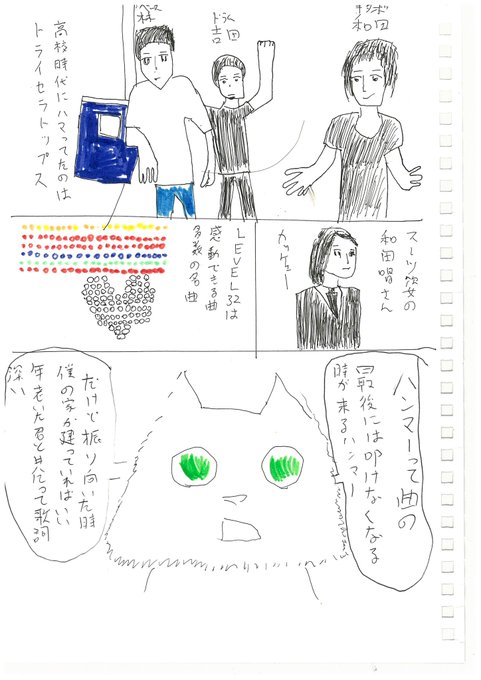 和田
ドラム
吉田
ベース
林
高校時代にハマってたのは
トライセラトップス
スーツ姿の
和田唱さん
カッケェー
LEVEL32は
感動できる曲
多数の名曲
ハンマーって曲の
最後には叩けなくなる
時が来るハンマー
だけど振り向いた時
僕の家が建っていればいい
年老いた君と共にって歌詞
深い